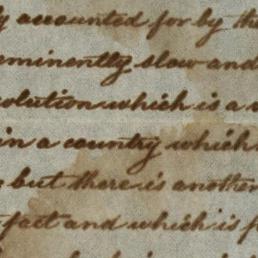 accounted for by the
eminently slow and
olution which is a
in a country which
but there is another
fact and which is f